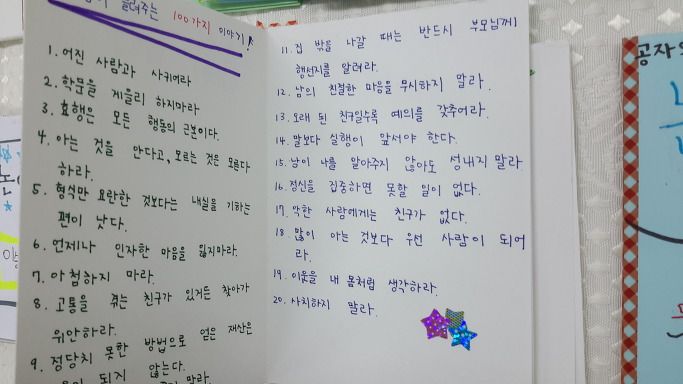 알려주는 100가지 이야기
1. 어진 사람과 사귀어라
2. 학문을 게을리 하지마라
3. 효행은 모든 행동의 근본이다.
4. 아는 것을 안다고, 모르는 것은 모른다
하라.
5. 형식만 요란한 것보다는 내실을 기하는
편이 낫다.
6. 언제나 인자한 마음을 잃지마라.
7. 아첨하지 마라.
8. 고통을 겪는 친구가 있거든 찾아가
위안하라.
9. 정당치 못한 방법으로 얻은 재산은
되지 않는다.
말라.
11. 집 밖을 나갈 때는 반드시 부모님께
행선지를 알려라.
12. 남의 친절한 마음을 무시하지 말라.
13. 오래 된 친구일수록 예의를 갖추어라.
14. 말보다 실행이 앞서야 한다.
15. 남이 나를 알아주지 않아도 성내지 말라
16. 정신을 집중하면 못할 일이 없다.
17. 악한 사람에게는 친구가 없다.
18. 많이 아는 것보다 우선 사람이 되어
라.
19. 이웃을 내 몸처럼 생각하라.
20. 사치하지 말라.
공자